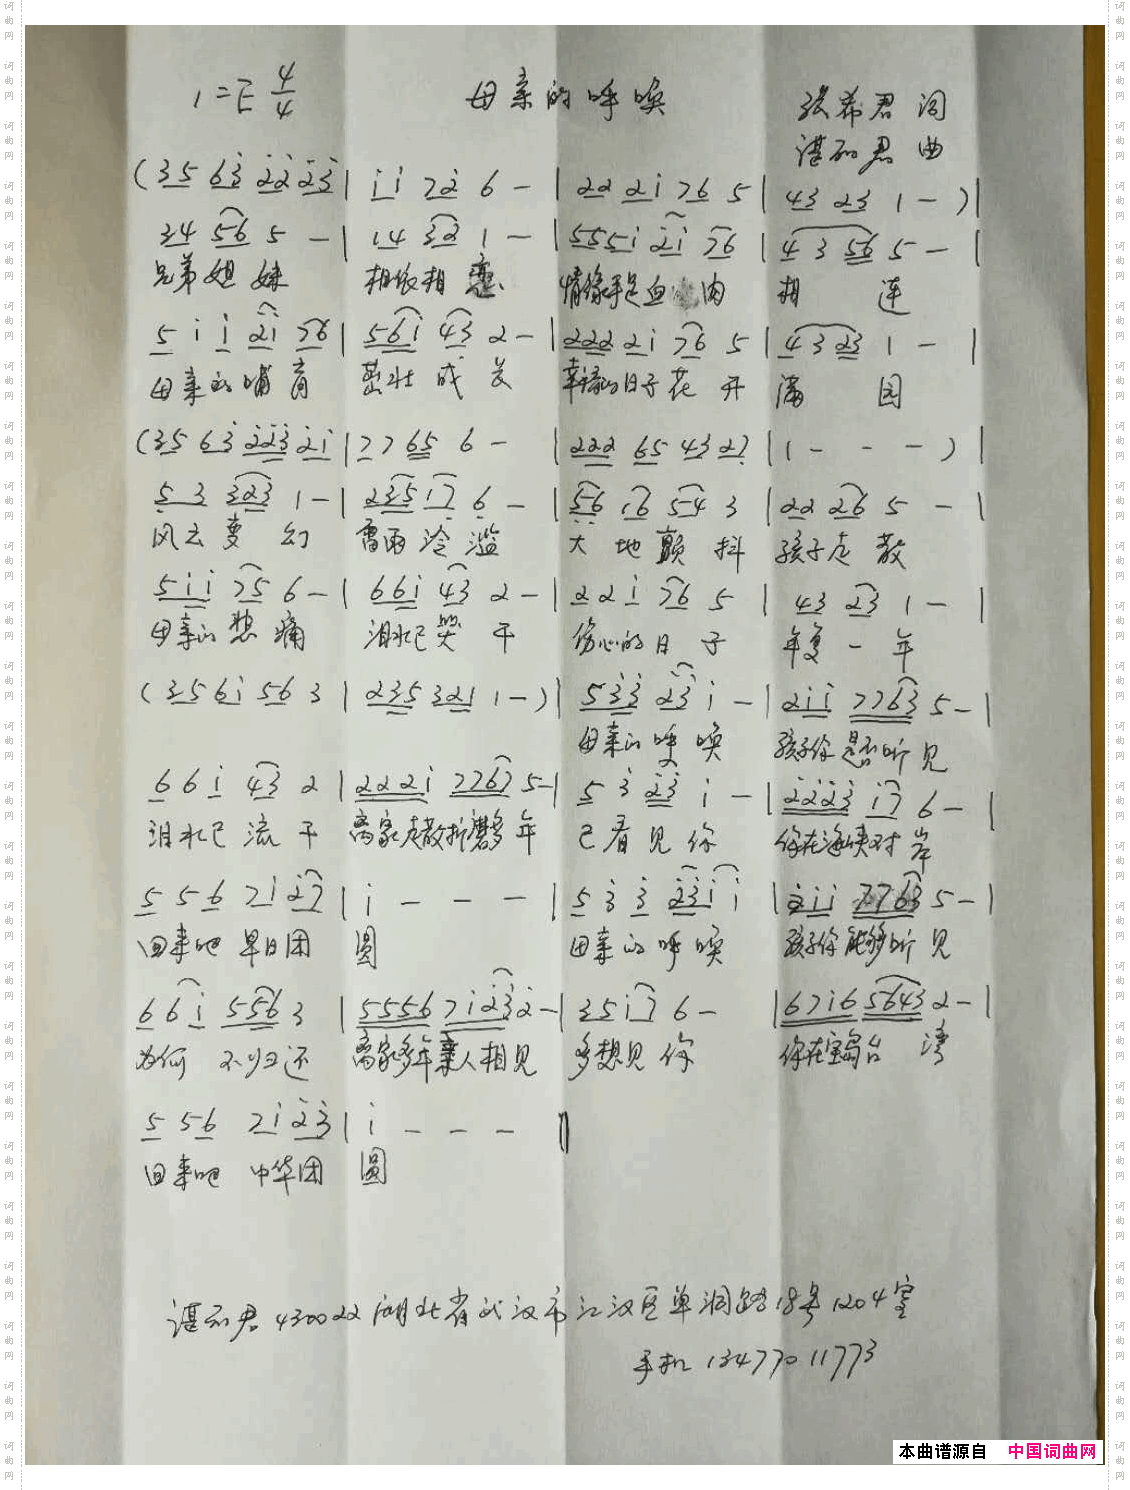 1=E 4/4 母亲的呼唤 张希君 词
谌丽君 曲
(3 5 6 3̇ 2̇ 2̇ 2̇ 3̇ | 1̇ 1̇ 7 2̇ 6 - | 2 2 2 1̇ 7 6 5 | 4 3 2 3 1 - ) |
3 4 5 6 5 - | 1 4 3 2 1 - | 5 5 5 1̇ 2̇ 1̇ 7 6 | 4 3 5 6 5 - |
兄弟姐妹 相依相恋 情缘手足血肉 相连
5 1̇ 1̇ 2̇ 1̇ 7 6 | 5 6 1̇ 4 3 2 - | 2 2 2 2 1̇ 7 6 5 | 4 3 2 3 1 - |
母亲的哺育 茁壮成长 幸福的日子花开 满园
(3 5 6 3̇ 2̇ 2̇ 3̇ 2̇ 1̇ | 7 7 6 5 6 - | 2 2 2 6 5 4 3 2 7̣ | 1 - - - ) |
5 3 3 2 3 1 - | 2 3 5 1 7̣ 6̣ - | 5̣ 6̣ 1 6 5 4 3 | 2 2 2 6 5 - |
风云变幻 雷雨冷滥 大地颤抖 孩子走散
5 1̇ 1̇ 7 5 6 - | 6 6 1̇ 4 3 2 - | 2 2 1̇ 7 6 5 | 4 3 2 3 1 - |
母亲的悲痛 泪水已哭干 伤心的日子 年复一年
(3 5 6 1̇ 5 6 3 | 2 3 5 3 2 1 1 - ) | 5 3̇ 3̇ 2̇ 3̇ 1̇ - | 2̇ 1̇ 1̇ 7 7 6 3 5 - |
母亲的呼唤 孩子你是否听见
6 6 1̇ 4 3 2 | 2 2 2 1̇ 7 7 6 7 5 - | 5 3̇ 2̇ 3̇ 1̇ - | 2̇ 2̇ 2̇ 3̇ 1̇ 7 6 - |
泪水已流干 离家走散折磨多年 已看见你 你在海峡对岸
5 5 6 7 1̇ 2̇ 7 | 1̇ - - - | 5 3̇ 3̇ 2̇ 3̇ 1̇ 1̇ | 2̇ 1̇ 1̇ 7 7 6 3 5 - |
回来吧早日团 圆 母亲的呼唤 孩子你能够听见
6 6 1̇ 5 5 6 3 | 5 5 5 6 7 1̇ 2̇ 3̇ 2̇ - | 3 5 1̇ 7 6 - | 6 7 1̇ 6 5 6 4 3 2 - |
为何不归还 离家多年亲人相见 多想见你 你在宝岛台湾
5 5 6 7 1̇ 2̇ 3̇ | 1̇ - - - ‖
回来吧 中华团 圆
谌丽君 430022 湖北省武汉市江汉区单洞路18号1204室
手机 13477011773
本曲谱源自 中国词曲网